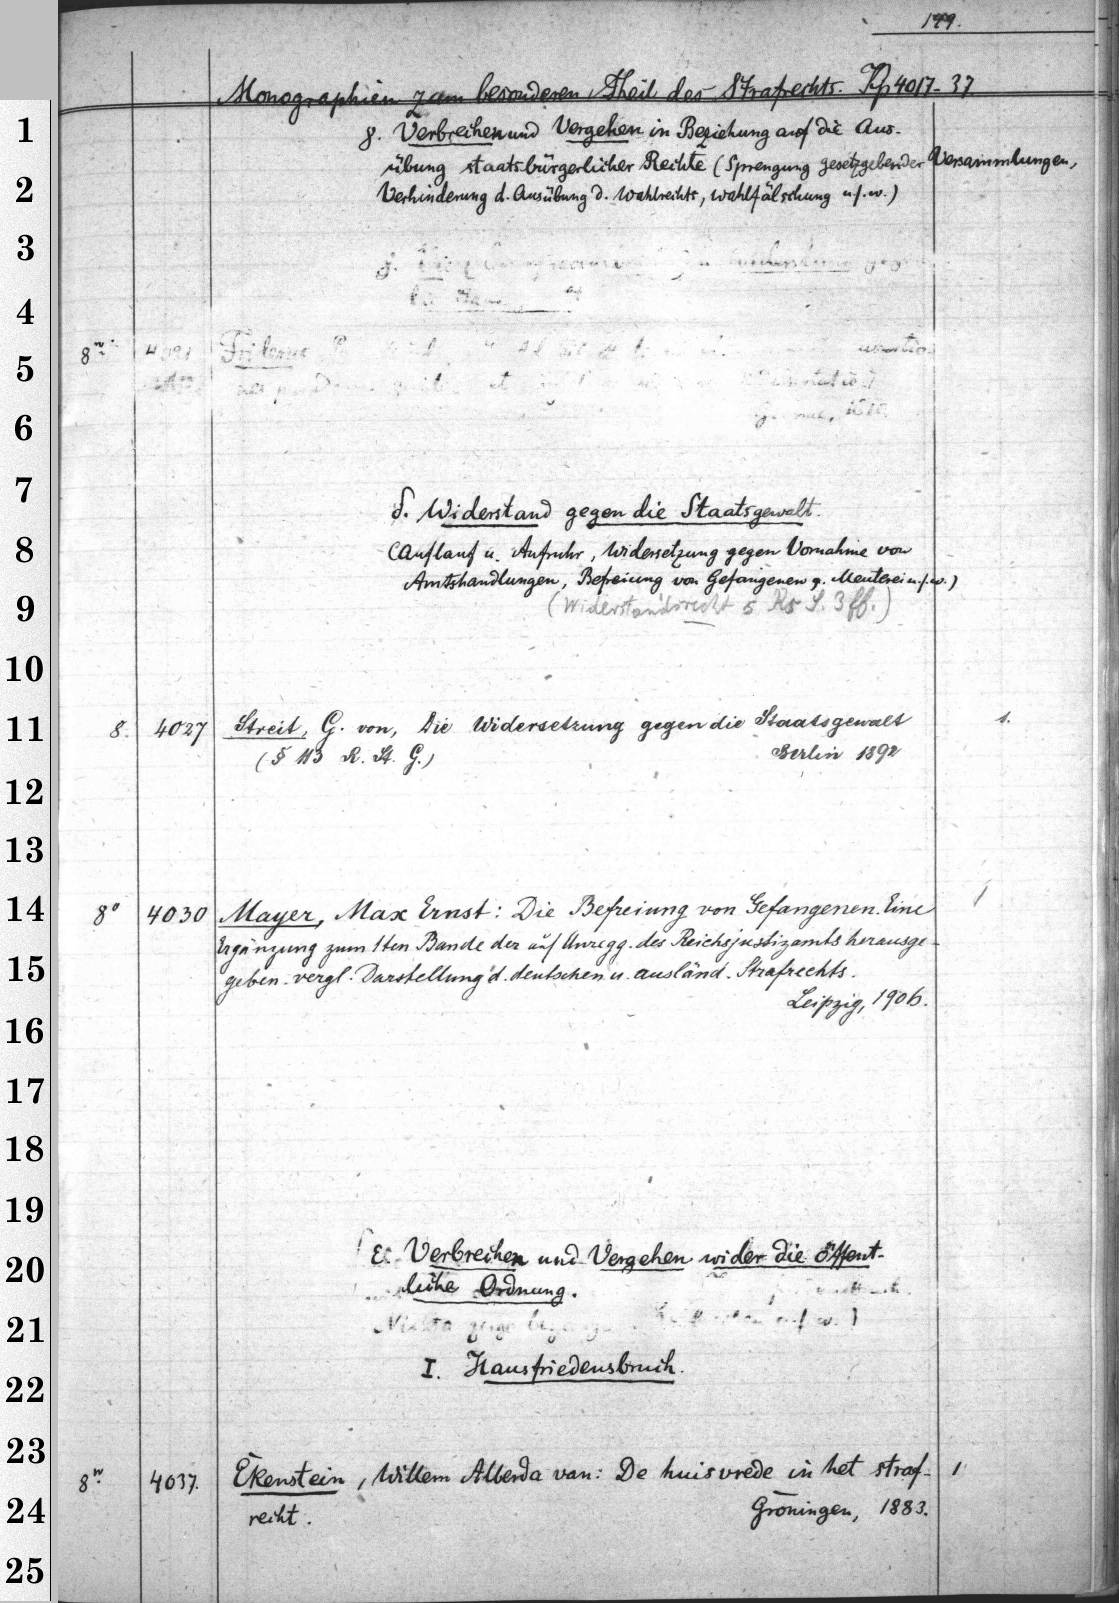 149.
Monographien zum besonderen Theil des Strafrechts. Kp 4017-37.
γ. Verbrechen und Vergehen in Beziehung auf die Aus-
übung staatsbürgerlicher Rechte (Sprengung gesetzgebender Versammlungen,
Verhinderung d. Ausübung d. Wahlrechts, Wahlfälschung u.s.w.)
8
δ. Widerstand gegen die Staatsgewalt.
(Auflauf u. Aufruhr, Widersetzung gegen Vornahme von
Amtshandlungen, Befreiung von Gefangenen, Meuterei u.s.w.)
(Widerstandsrecht s. R5 S. 3 ff.)
8. 4027 Streit, G. von, Die Widersetzung gegen die Staatsgewalt 1.
(§ 113 R. St. G.) Berlin 1892
8° 4030 Mayer, Max Ernst: Die Befreiung von Gefangenen. Eine 1
Ergänzung zum 1ten Bande der auf Anregg. des Reichsjustizamts herausge-
geben. vergl. Darstellung d. deutschen u. ausländ. Strafrechts.
Leipzig, 1906.
ε. Verbrechen und Vergehen wider die öffent-
liche Ordnung.
I. Hausfriedensbruch.
8 4037. Ekenstein, Willem Alberda van: De huisvrede in het straf- 1
recht. Groningen, 1883.
1
2
3
4
5
6
7
8
9
10
11
12
13
14
15
16
17
18
19
20
21
22
23
24
25